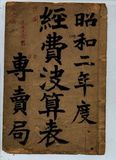 昭和二年度
經費決算表
專賣局